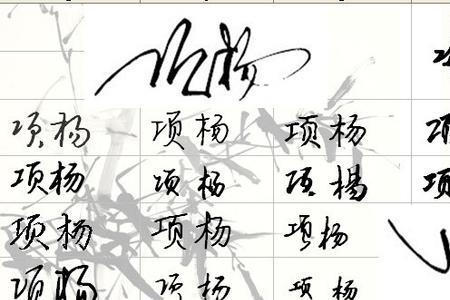 项杨
项杨 项杨 项杨 项
项杨 项杨 项杨 项
项杨 项杨 项杨
项杨 项杨 项杨